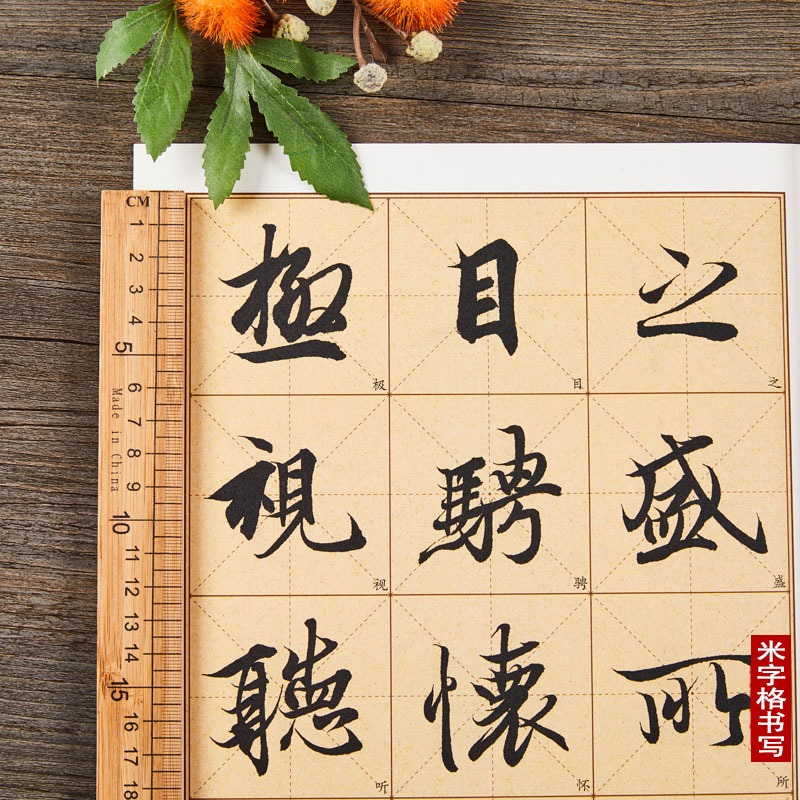 之盛所
目騁懷
極視聽
之
盛
所
目
骋
怀
极
视
听
CM
1
2
3
4
5
6
7
8
9
10
11
12
13
14
15
16
17
18
Made in China
米字格书写